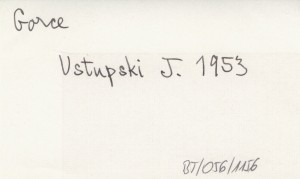 Gorce
Ustupski J. 1953
BT/056/1156